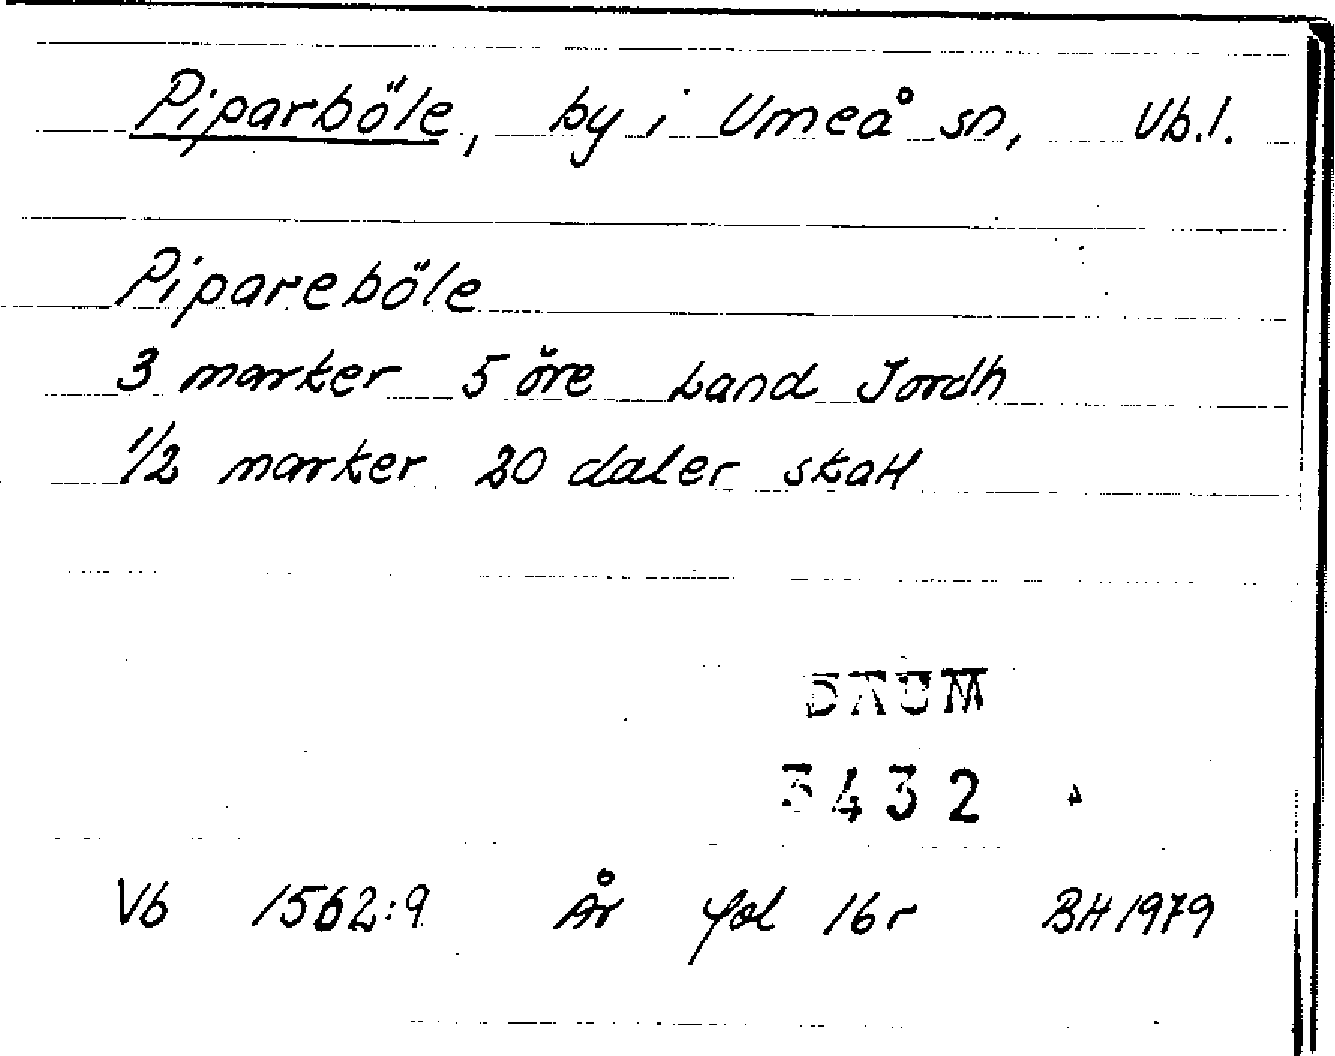 Piparböle, by i Umeå sn, Vb.l.
Pipareböle
3 marker 5 öre Land Jordh
1/2 marker 20 daler skatt
DAUM
3432
Vb 1562:9 År fol 16r BH 1979